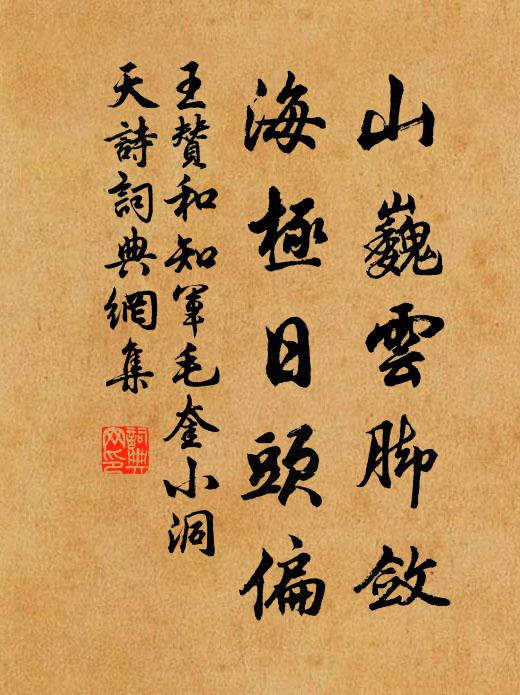 山巍雲脚斂
海極日頭偏
王贊和知軍毛奎小洞
天詩詞典網集
詞典
网印